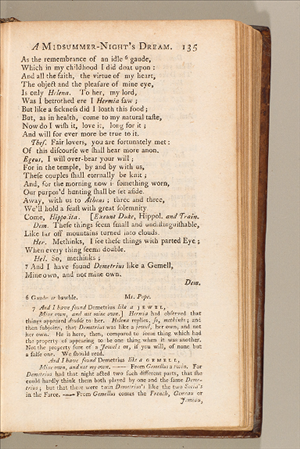 A MIDSUMMER-NIGHT'S DREAM. 135
As the remembrance of an idle 6 gaude,
Which in my childhood I did doat upon:
And all the faith, the virtue of my heart,
The object and the pleasure of mine eye,
Is only Helena. To her, my lord,
Was I betrothed ere I Hermia saw;
But like a sickness did I loath this food;
But, as in health, come to my natural taste,
Now do I wish it, love it, long for it;
And will for ever more be true to it.
Thes. Fair lovers, you are fortunately met:
Of this discourse we shall hear more anon.
Egeus, I will over-bear your will;
For in the temple, by and by with us,
These couples shall eternally be knit;
And, for the morning now is something worn,
Our purpos'd hunting shall be set aside.
Away, with us to Athens; three and three,
We'll hold a feast with great solemnity
Come, Hippolita. [Exeunt Duke, Hippol. and Train.
Dem. These things seem small and undistinguishable,
Like far off mountains turned into clouds.
Her. Methinks, I see these things with parted Eye;
When every thing seems double.
Hel. So, methinks;
7 And I have found Demetrius like a Gemell,
Mine own, and not mine own.
Dem.
6 Gaude or bawble. Mr. Pope.
7 And I have found Demetrius like a JEWEL,
Mine own, and not mine own.] Hermia had observed that
things appeared double to her. Helena replies, So, methinks; and
then subjoins, that Demetrius was like a jewel, her own, and not
her own. He is here, then, compared to some thing which had
the property of appearing to be one thing when it was another.
Not the property sure of a Jewel: or, if you will, of none but
a false one. We should read,
And I have found Demetrius like a GEMELL,
Mine own, and not my own.
From Gemellus a twin. For
Demetrius had that night acted two such different parts, that she
could hardly think them both played by one and the same Demetrius;
but that there were twin Demetrius's like the two Sosia's
in the Farce. — From Gemellus comes the French, Gemeau or
Jumeau,